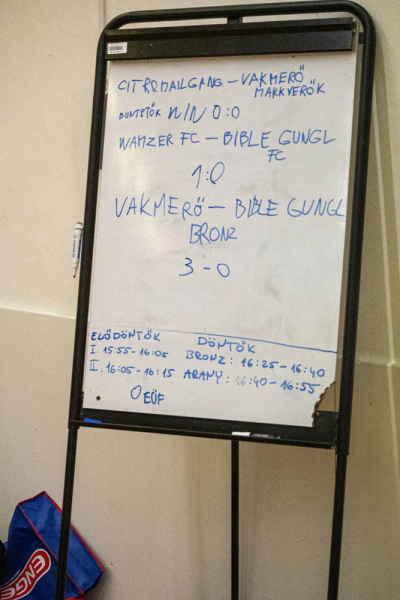 CITROMAILGANG – VAKMERŐ
MAKKVERŐK
BÜNTETŐK N/N 0:0
WAMZER FC – BIBLE GUNGL
FC
1:0
VAKMERŐ – BIBLE GUNGL
BRONZ
3 - 0
ELŐDÖNTŐK
I. 15:55 - 16:05
II. 16:05 - 16:15
DÖNTŐK
BRONZ: 16:25 - 16:40
ARANY: 16:40 - 16:55